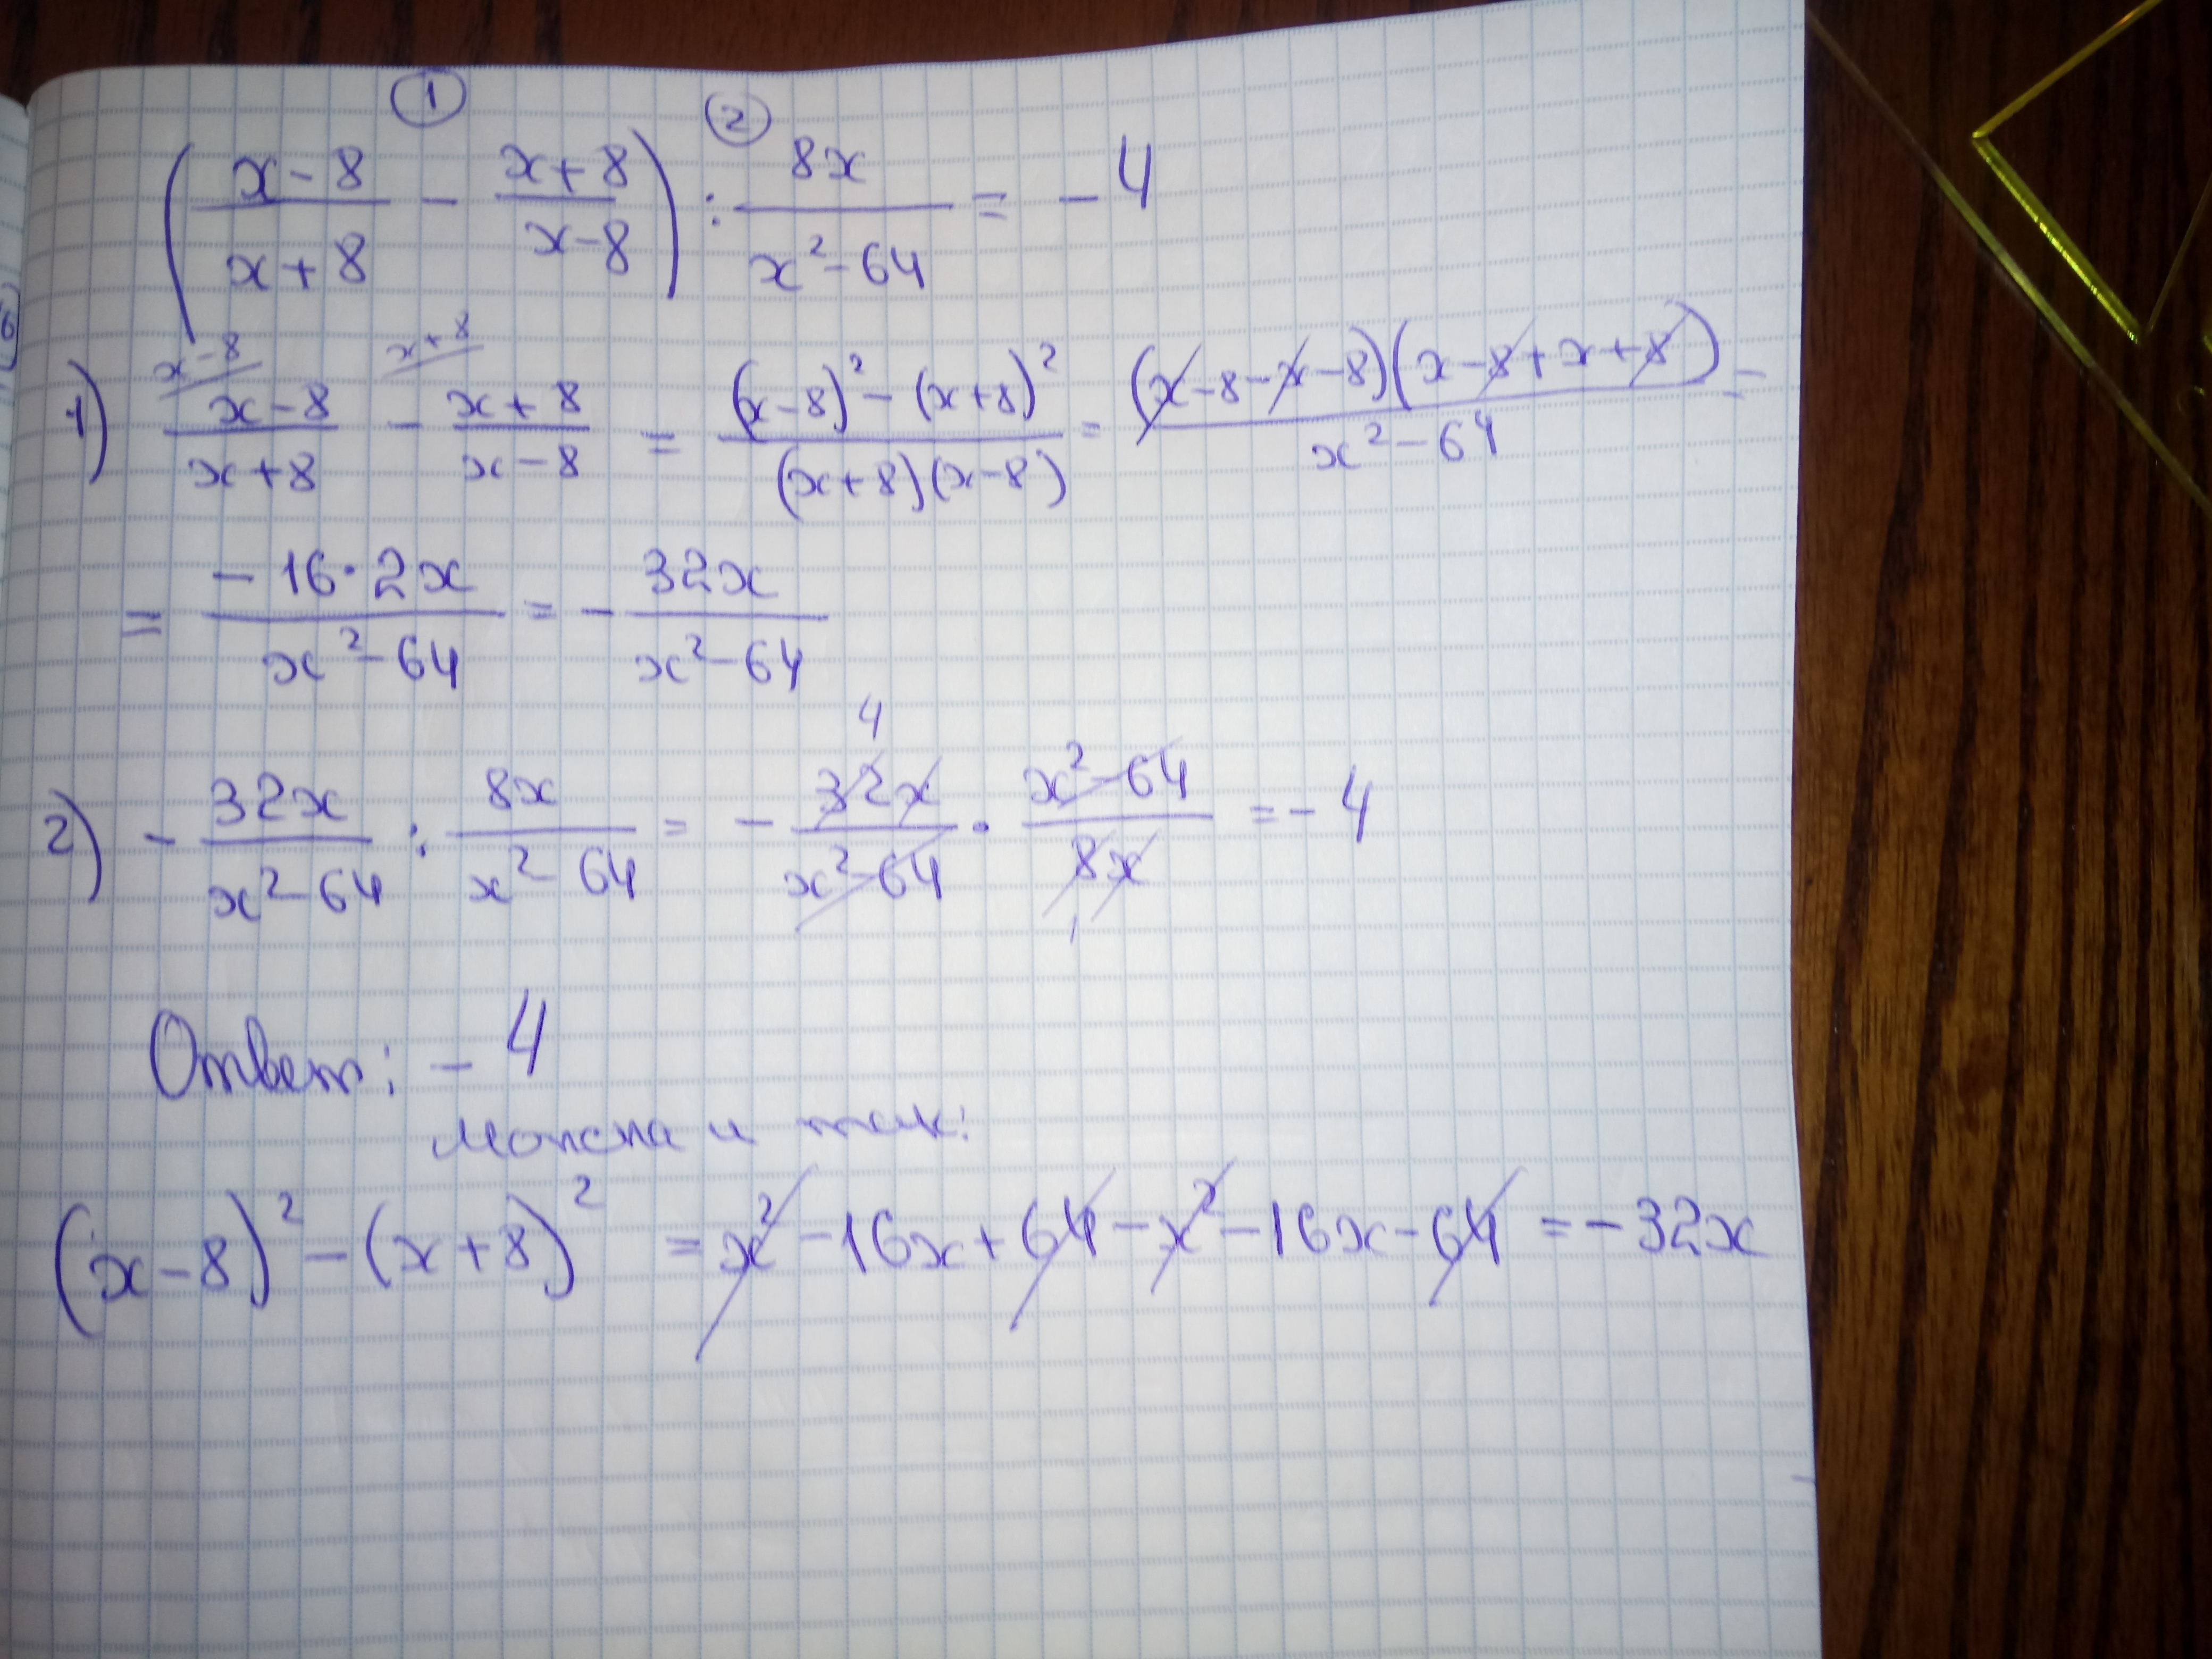 ① ②
(x-8/x+8 - x+8/x-8) : 8x/x²-64 = -4
1) x-8/x+8 - x+8/x-8 = (x-8)²-(x+8)²/(x+8)(x-8) = (x-8-x-8)(x-8+x+8)/x²-64 =
x-8 x+8
= -16·2x/x²-64 = - 32x/x²-64
2) - 32x/x²-64 : 8x/x²-64 = - 32x/x²-64 · x²-64/8x = -4
4
1
Ответ: -4
Можна и так:
(x-8)² - (x+8)² = x²-16x+64-x²-16x-64 = -32x